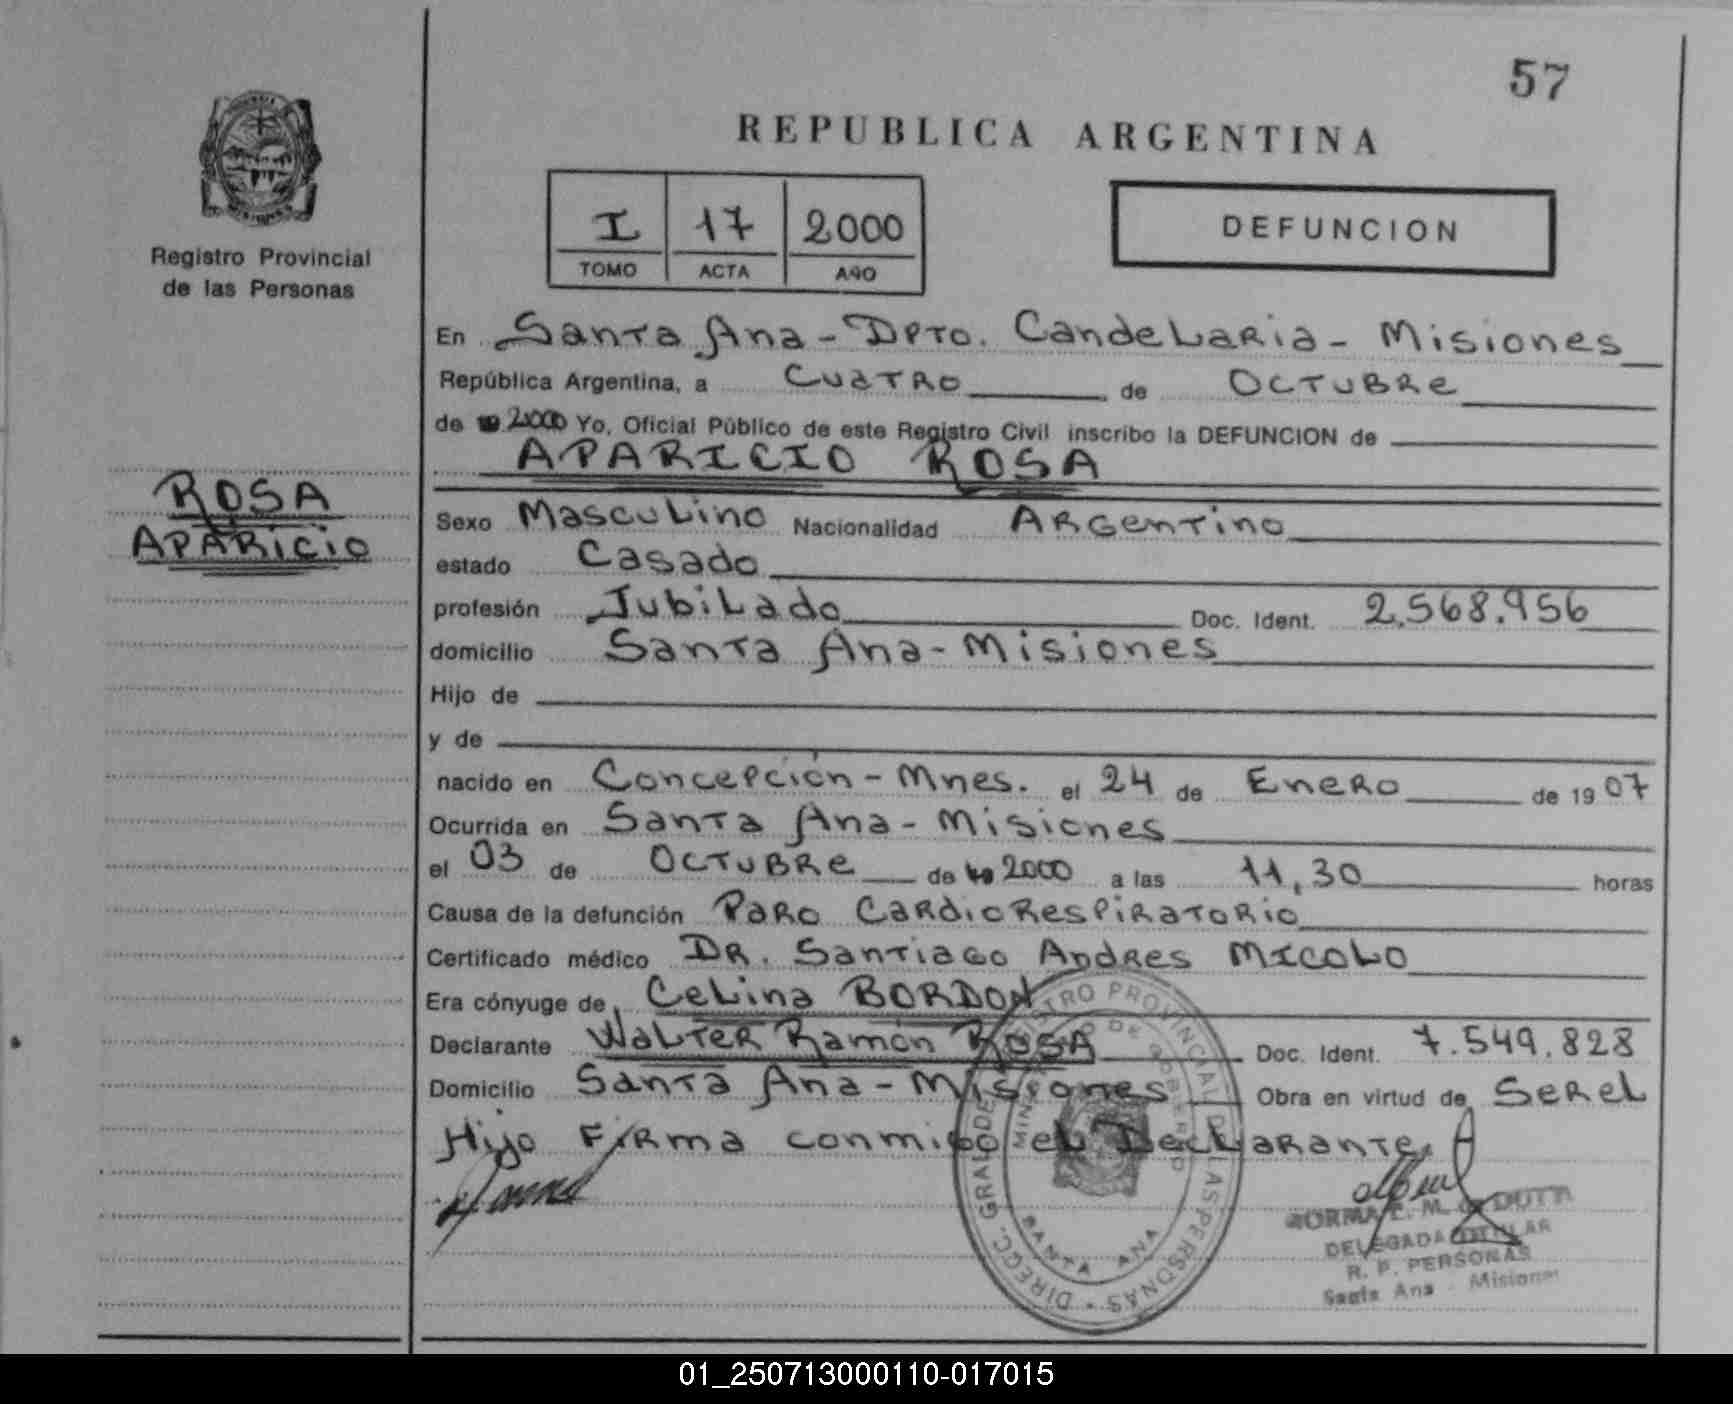 57
REPUBLICA ARGENTINA
Registro Provincial
de las Personas
I 17 2000
TOMO ACTA AÑO
DEFUNCION
En Santa Ana - Dpto. Candelaria - Misiones
República Argentina, a Cuatro de Octubre
de 19 2000 Yo, Oficial Público de este Registro Civil inscribo la DEFUNCION de
APARICIO ROSA
ROSA
APARICIO
Sexo Masculino Nacionalidad Argentino
estado Casado
profesión Jubilado Doc. Ident. 2.568.956
domicilio Santa Ana - Misiones
Hijo de
y de
nacido en Concepción - Mnes. el 24 de Enero de 1907
Ocurrida en Santa Ana - Misiones
el 03 de Octubre de 19 2000 a las 11,30 horas
Causa de la defunción Paro Cardiorespiratorio
Certificado médico Dr. Santiago Andres MICOLO
Era cónyuge de Celina BORDON
Declarante Walter Ramón ROSA Doc. Ident. 7.549.828
Domicilio Santa Ana - Misiones Obra en virtud de Ser el
Hijo Firma conmigo el Declarante.
DIRECC. GRAL. DE REGISTRO PROVINCIAL DE LAS PERSONAS
SANTA ANA
NORMA E. M. de DUTTI
DELEGADA TITULAR
R. P. PERSONAS
Santa Ana - Misiones
01_250713000110-017015